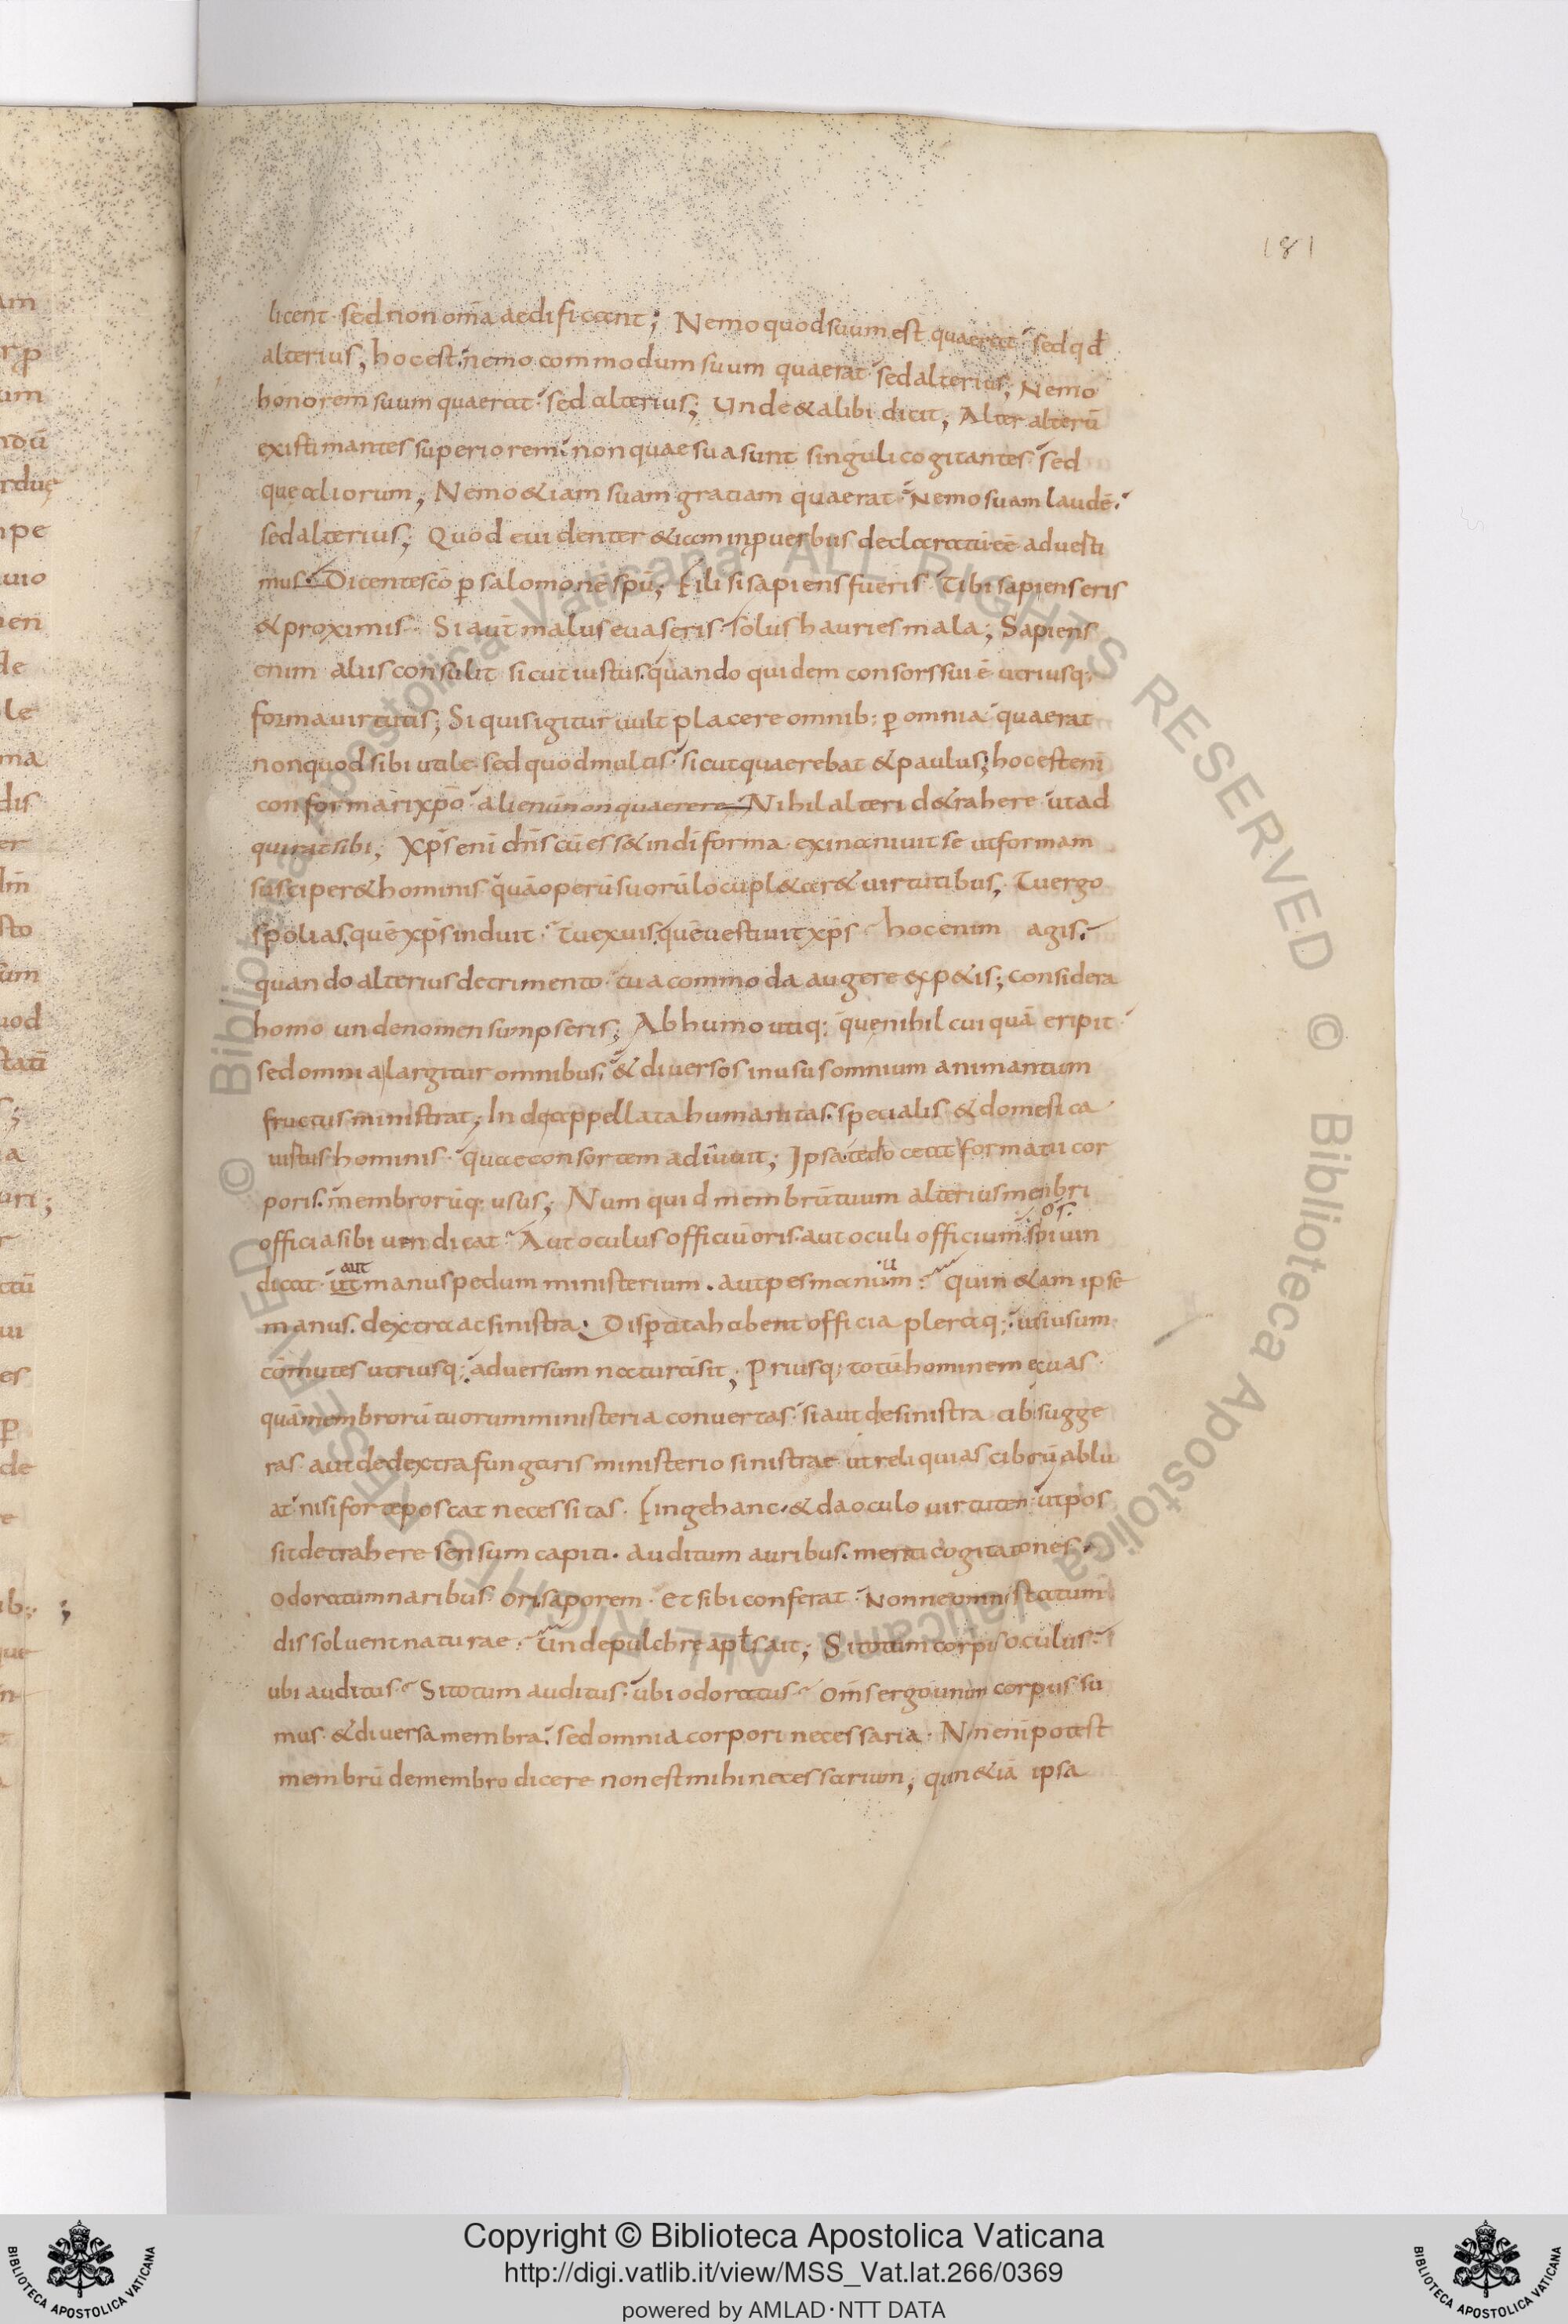 181
licent sed non om̄ia aedificant; Nemo quod suum est quaerat sed qd̄
alterius; hoc est nemo commodum suum quaerat sed alterius; Nemo
honorem suum quaerat sed alterius; Unde & alibi dicit; Alter alterū
existimantes superiorem non quae sua sunt singuli cogitantes sed
que aliorum; Nemo &iam suam gratiam quaerat Nemo suam laudē
sed alterius; Quod euidenter &iam in puerbiis declaratū eē aduerti
mus. Dicente sc̄o p salomonē spū; Fili si sapiens fueris Tibi sapiens eris
& proximis. Si aut̄ malus euaseris solus hauries mala; Sapiens
enim aliis consulit sicut iustus quando quidem consors sui ē utriusq;
forma uirtutis; Si quis igitur uult placere omnib: p omnia quaerat
non quod sibi utile sed quod multis sicut quaerebat & paulus; hoc est enī
conformari xpō alienū non quaerere Nihil alteri d&rahere ut ad
quirat sibi; Xps̄ enī dn̄s cū ess& in dī forma exinaniuit se ut formam
susciper& hominis quā operū suorū locupl&ar& uirtutibus; Tu ergo
spolias quē xps̄ induit. Tu exuis quē uestiuit xps̄ hoc enim agis
quando alterius detrimento tua commoda augere exp&is; considera
homo unde nomen sumpseris; Ab humo utiq; que nihil cuiquā eripit
sed omnia largitur omnibus. & diuersos in usus omnium animantium
fructus ministrat; Inde appellata humanitas. specialis & domestica
uirtus hominis. quae consortem adiuuat; Ipsa te doceat forma tui cor
poris. membrorūq; usus; Num quid membrū tuum alterius menbri
os.
officia sibi uendicat Aut oculus officiū oris. aut oculi officium sibi uin
aut u
dicat. ut manus pedum ministerium. aut pes manum. Quin &iam ipse
manus. dextra ac sinistra. Dispertita habent officia pleraq; ut si usum
cōmutes utriusq; aduersum naturā sit; Priusq; totū hominem exuas
quā membrorū tuorum ministeria conuertas si aut de sinistra cib sugge
ras aut de dextra fungaris ministerio sinistrae ut reliquias ciborū ablu
at nisi forte poscat necessitas. Finge hanc. & da oculo uirtutem ut pos
sit detrahere sensum capiti. auditum auribus. menti cogitationes.
odoratum naribus ori saporem. Et sibi conferat Nonne omnē statum
dissoluent naturae. Unde pulchre apl̄s ait; Si totum corpus oculus
ubi auditus Si totum auditus. ubi odoratus Om̄s ergo unum corpus su
mus. & diuersa membra. sed omnia corpori necessaria. Non enī potest
membrū de membro dicere non est mihi necessarium; quin &iā ipsa
Copyright © Biblioteca Apostolica Vaticana
http://digi.vatlib.it/view/MSS_Vat.lat.266/0369
powered by AMLAD·NTT DATA
BIBLIOTECA APOSTOLICA VATICANA
BIBLIOTECA APOSTOLICA VATICANA
© Biblioteca Apostolica Vaticana ALL RIGHTS RESERVED © Biblioteca Apostolica Vaticana ALL RIGHTS RESERVED